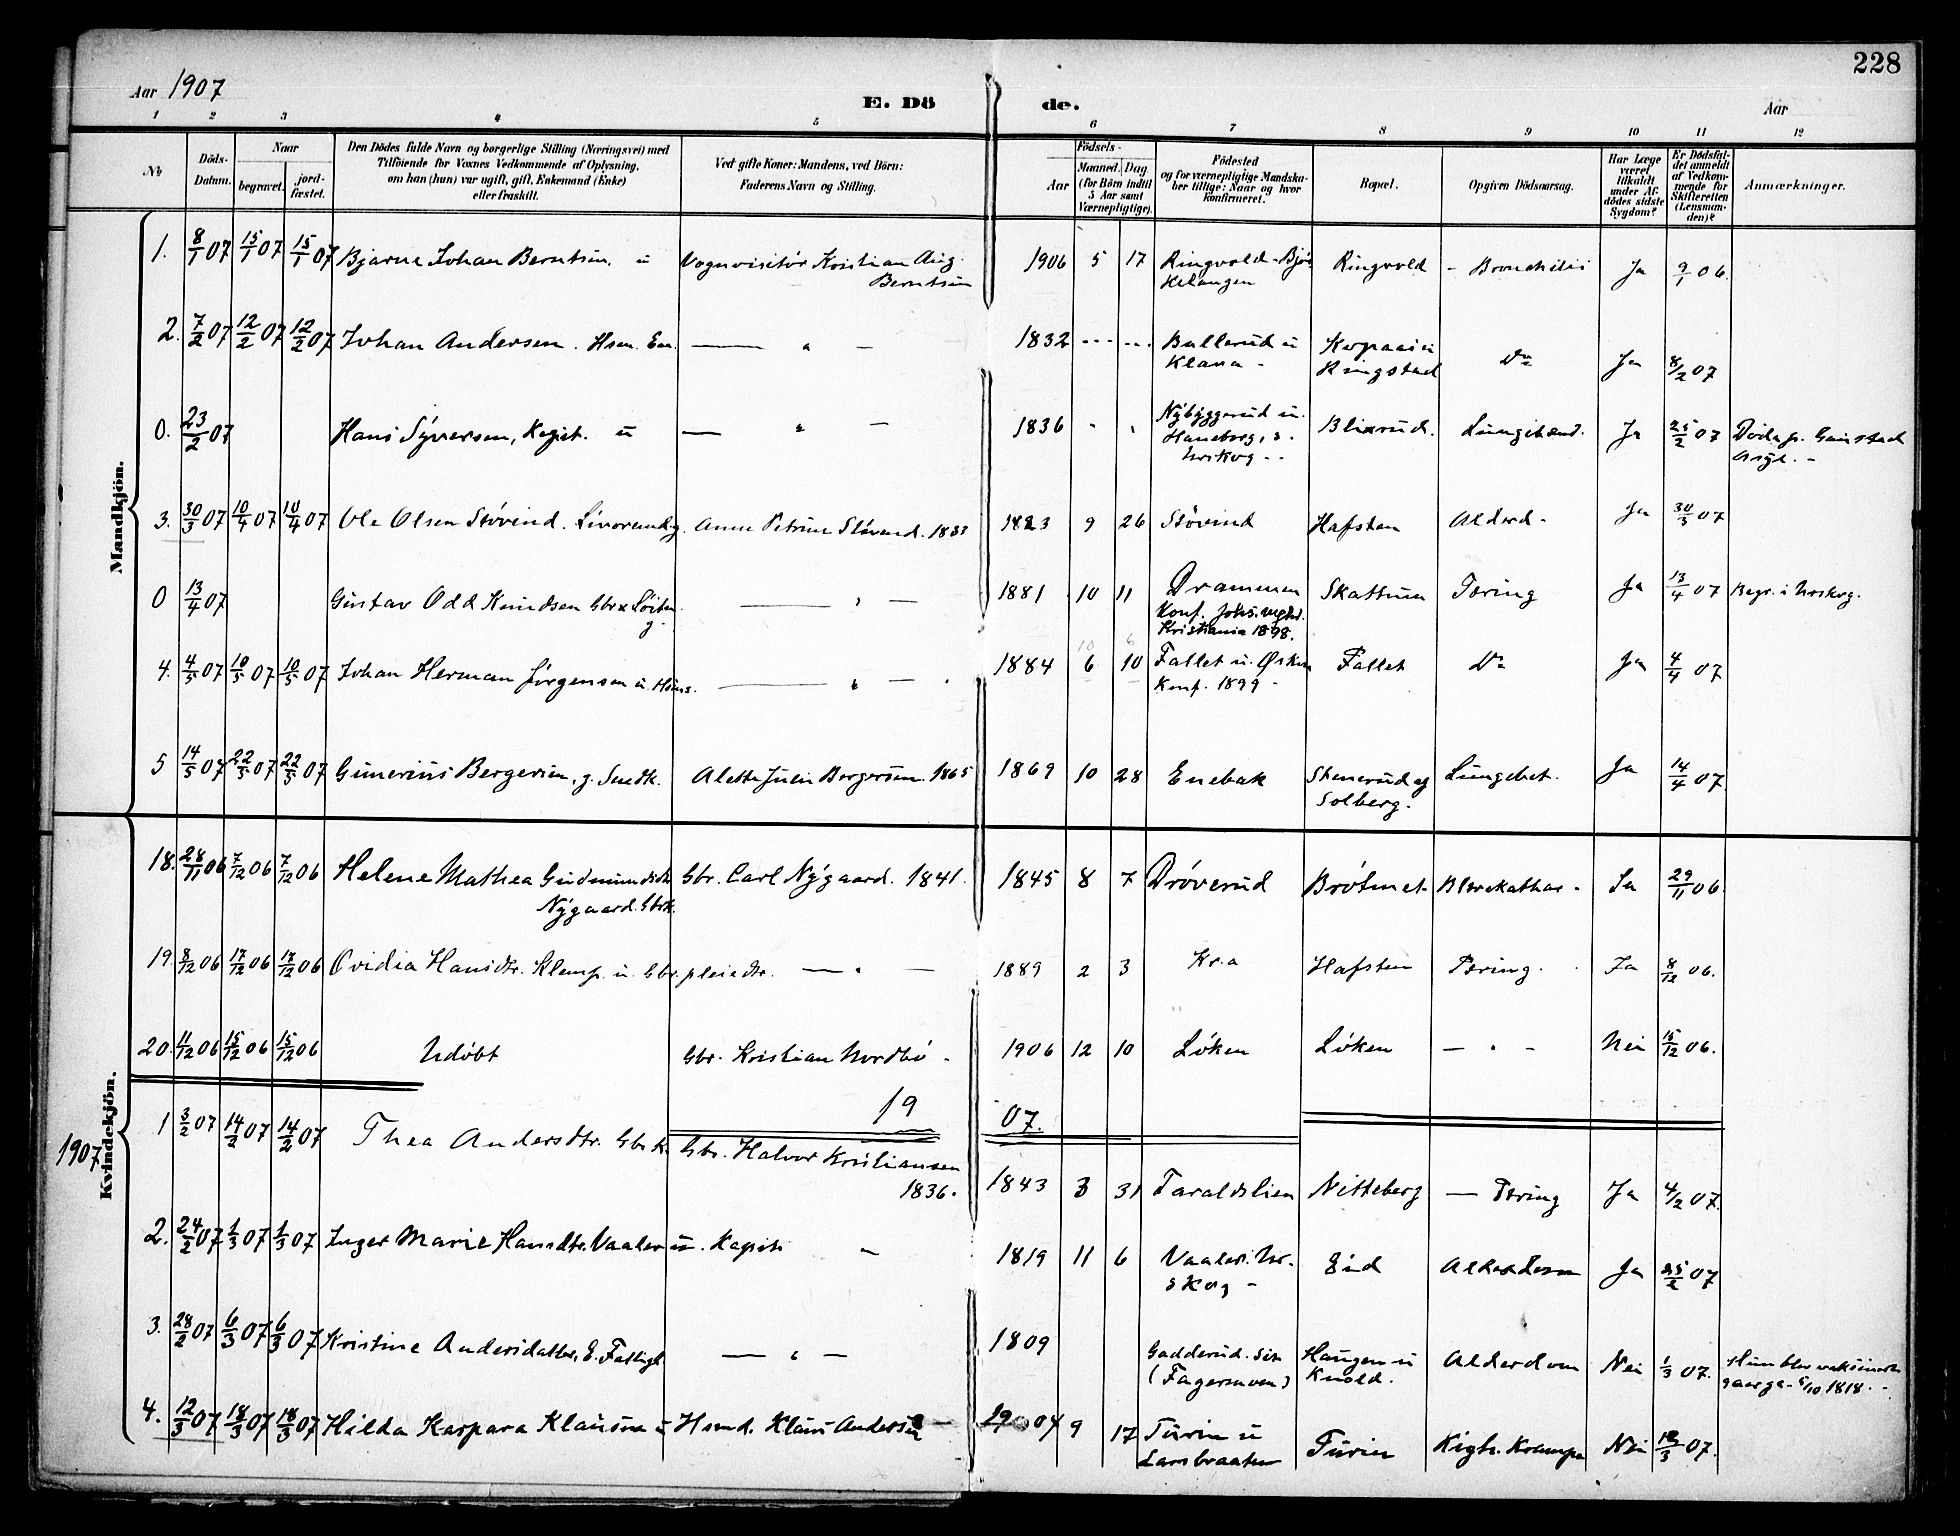 228
Aar 1907
E. Dö
de.
Aar
1 2 3 4 5 6 7 8 9 10 11 12
№
Döds-Datum.
Naar
begravet.
jord-fæstet.
Den Dödes fulde Navn og borgerlige Stilling (Næringsvei) med
Tilföiende for Voxnes Vedkommende af Oplysning,
om han (hun) var ugift, gift, Enkemand (Enke)
eller fraskilt.
Ved gifte Koner: Mandens, ved Börn:
Faderens Navn og Stilling.
Födsels-
Aar
Maaned. Dag
(for Börn indtil
5 Aar samt
Værnepligtige).
Födested
og for værnepligtige Mandska-
ber tillige: Naar og hvor
konfirmeret.
Bopæl.
Opgiven Dödsaarsag.
Har Læge
været
tilkaldt
under Af-
dödes sidste
Sygdom?
Er Dödsfal-
det anmeldt
af Vedkom-
mende for
Skifteretten
(Lensman-
den)?
Anmærkninger.
Mandkjön.
1. 8/1 07 15/1 07 15/1 07 Bjarne Johan Berntsen. u Vognvisitör Kristian Aug. 1906 5 17 Ringvold - Björ Ringvold - Bronchitis Ja 9/1 06.
Berntsen Kelangen
2. 7/2 07 12/2 07 12/2 07 Johan Andersen. Hsm. Em. — " — 1832 Bullerud u Korpaasen
Klana - Ringstad Do Ja 8/2 07
0. 23/2 07 Hans Syversen, Kapit. u — " — 1836 Nybyggerud u. Blixrud. Lungebænd. Ja 25/2 07 Döde p. Gaustad
Haneborg, i. Asyl. -
Urskog - -
3. 30/3 07 10/4 07 10/4 07 Ole Olsen Stövind. Livorenm. g. Anne Petrine Stövind. 1833 1823 9 26 Stövind Hafsten Alderd - Ja 30/3 07
0 13/4 07 Gustav Odd Knudsen Gbr. Löiten — " — 1881 10 11 Drammen Skattum Tæring Ja 13/4 07 Begr. i Urskog.
g. Konf. Johs. mghd.
Kristiania 1898.
4. 4/5 07 10/5 07 10/5 07 Johan Herman Jörgensen u. Hsms. — " — 1884 6 10 Fallet u. Ørsken Fallet Do Ja 4/4 07
Konf. 1899 -
5 14/5 07 22/5 07 22/5 07 Gunerius Bergersen, g. Snedk. Alette Julie Bergersen. 1865 1869 10 28 Enebak Stenerud af Lungebet. Ja 14/4 07
Solberg.
Kvindekjön.
18. 28/11 06 7/12 06 7/12 06 Helene Mathea Gudmundsdtr Gbr. Carl Nygaard. 1841. 1845 8 7 Dröverud Brötmet Blærekathar - Ja 29/11 06.
Nygaard. Gbrk.
19. 8/12 06 17/12 06 17/12 06 Ovidia Hansdtr. Klemp. u. Gbr. pleiedtr. — " — 1889 2 3 Kr.a Hafsten Tæring. Ja 8/12 06.
20. 11/12 06 15/12 06 15/12 06 Udöbt Gbr. Kristian Nordbö - 1906 12 10 Löken Löken — " — Nei 15/12 06.
19 07.
1907
1 3/2 07 14/2 07 14/2 07 Thea Andersdtr. Gbrk. Gbr. Halvor Kristiansen
1836. 1843 3 31 Taraldslien Nitteberg — Tæring Ja 4/2 07.
2. 24/2 07 1/3 07 1/3 07 Inger Marie Hansdtr. Vaaler u. Kapit " 1819 11 6 Vaaler. Ur- Eid Alderdom Ja 25/2 07
skog -
3. 28/2 07 6/3 07 6/3 07 Kristine Andersdatter, E. Fattigl. — " — 1809 Gadderud. Haugen u Alderdom Nei 1/3 07. Hun blev
(Fagermoen) Knold. 5/10 1818. -
4. 12/3 07 18/3 07 18/3 07 Hilda Kaspara Klausen u Hsmd. Klaus Andersen — 1904 9 17 Turin u Turin Kigh. Krampe Nei 12/3 07.
Larsbraaten